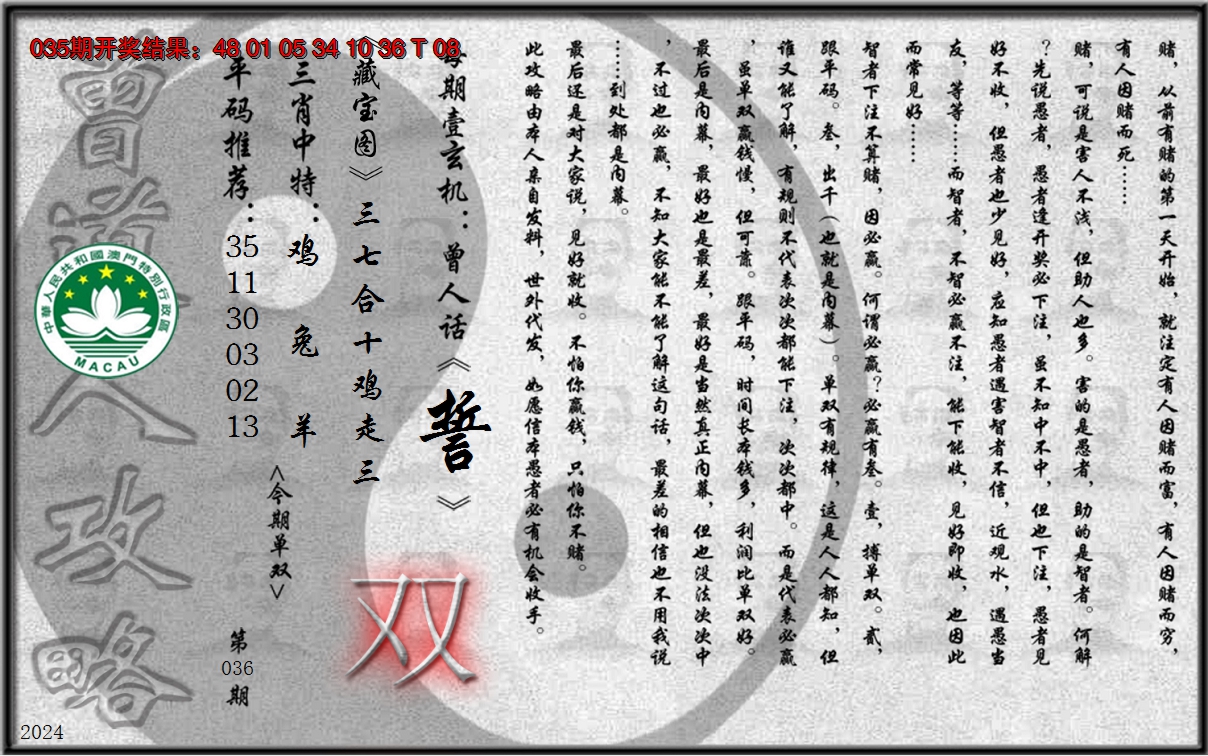 035期开奖结果：48 01 05 34 10 36 T 08
赌，从前有赌的第一天开始，就注定有人因赌而富，有人因赌而穷，
有人因赌而死……
赌，可说是害人不浅，但助人也多。害的是愚者，助的是智者。何解
？先说愚者，愚者逢开奖必下注，虽不知中不中，但也下注，愚者见
好不收，但愚者也少见好，应知愚者遇害智者不信，近观水，遇愚当
友，等等……而智者，不智必赢不注，能下能收，见好即收，也因此
而常见好……
智者下注不算赌，因必赢。何谓必赢？必赢有叁。壹，搏单双。贰，
跟平码。叁，出千（也就是内幕）。单双有规律，这是人人都知，但
谁又能了解，有规则不代表次次都能下注，次次都中。而是代表必赢
，虽单双赢钱慢，但可靠。跟平码，时间长本钱多，利润比单双好。
最后是内幕，最好也是最差，最好是当然真正内幕，但也没法次次中
，不过也必赢，不知大家能不能了解这句话，最差的相信也不用我说
……到处都是内幕。
最后还是对大家说，见好就收。不怕你赢钱，只怕你不赌。
此攻略由本人亲自发料，世外代发，如愿信本愚者必有机会收手。
每期壹玄机：曾人话《誓》
《藏宝图》三七合十鸡走三
双
三肖中特：鸡 兔 羊
<今期单双>
平码推荐：35 11 30 03 02 13
第036期
曾道人攻略
中華人民共和國澳門特別行政區
MACAU
2024